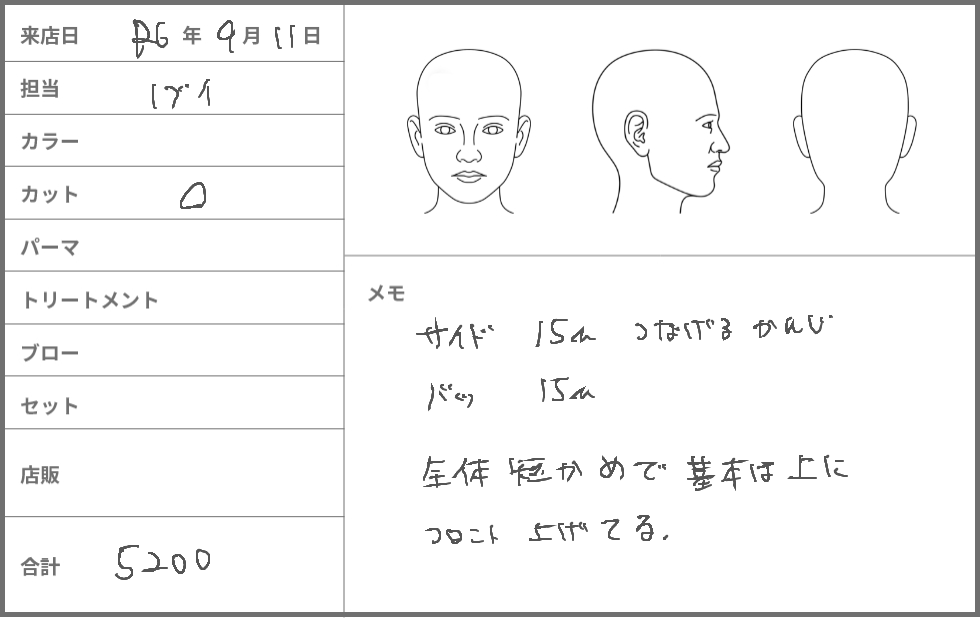 来店日 R6年 9月 11日
担当
カラー
カット ○
パーマ
トリートメント
ブロー
セット
店販
合計 5200
メモ
サイド 15cm つなげる かんじ
バック 15cm
全体 短かめで 基本は上に
フロント 上げてる.